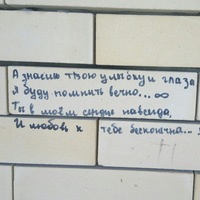 А знаешь твою улыбку и глаза
я буду помнить вечно... ∞
Ты в моём сердце навсегда,
И любовь к тебе бесконечна...